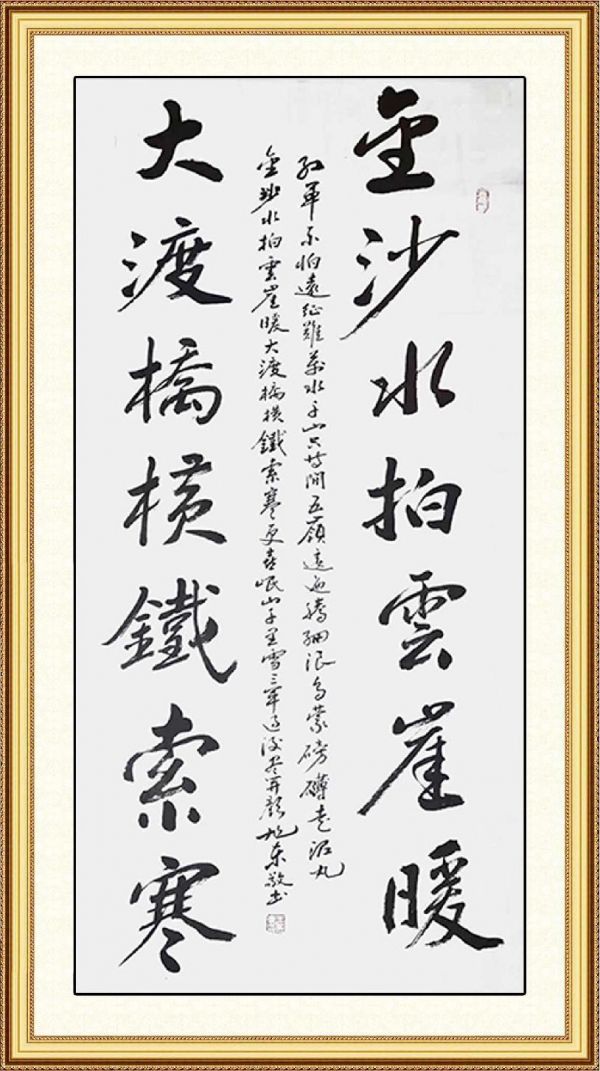 金沙水拍雲崖暖
红军不怕遠征難萬水千山只等閒五嶺逶迤腾细浪烏蒙磅礴走泥丸
金沙水拍雲崖暖大渡橋横鐵索寒更喜岷山千里雪三军过後尽开颜旭东敬书
大渡橋横鐵索寒